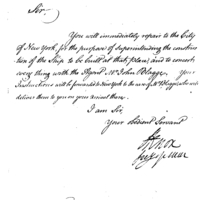 Sir.
You will immediately repair to the City
of New York for the purpose of Superintending the construc
tion of the Ship to be built at that place; and to concert
every thing with the Agent Mr John Blagge. Your
Instructions will be forwarded to New York to the care of Mr Blagge, who will
deliver them to you on your arrival there.
I am Sir,
Your obedient Servant
H Knox
Secy of War